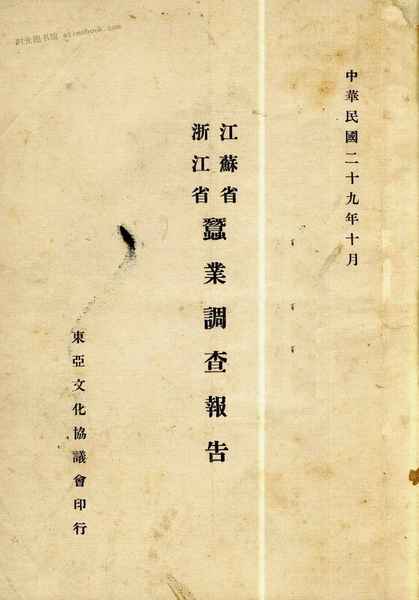 中華民國二十九年十月
江蘇省
浙江省
蠶業調查報告
東亞文化協議會印行
时光图书馆 etimebook.com